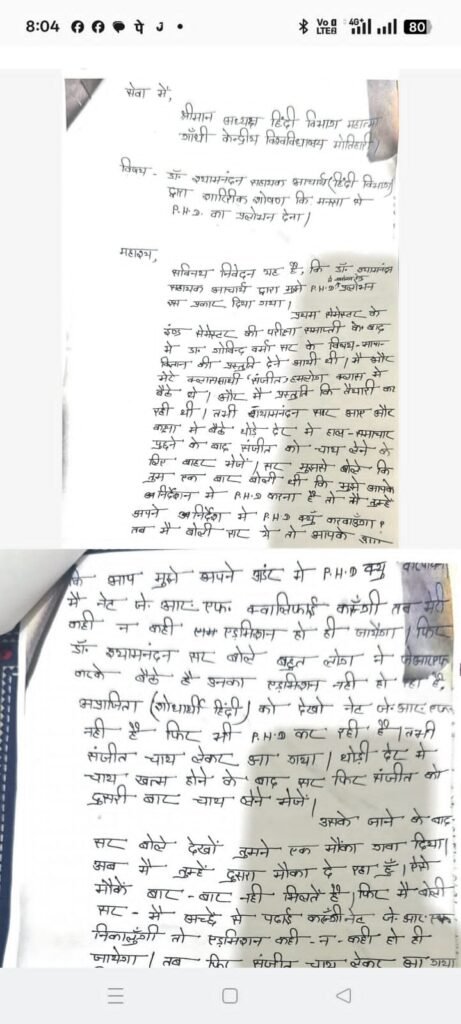 8:04
Vo LTE 4G+ 80
सेवा में,
श्रीमान अध्यक्ष हिंदी विभाग महात्मा
गाँधी केन्द्रीय विश्वविद्यालय मोतिहारी
विषय - डॉ. श्यामनंदन सहायक आचार्य (हिंदी विभाग)
द्वारा शारिरीक शोषण कि मनसा से
P.H.D. का प्रलोभन देना।
महाशय,
सविनय निवेदन यह है, कि डॉ. श्यामनंदन
सहायक आचार्य द्वारा मुझे P.H.D प्रलोभन
इस प्रकार दिया गया।
प्रथम सेमेस्टर के
इण्ड सेमेस्टर की परीक्षा समाप्ती के बाद
मे डा. गोविन्द वर्मा सर के विषय-भाषा-
विज्ञान की प्रस्तुति देने आयी थी। मै और
मेरे क्लासथी संजीत हमलोग क्लास मे
बैठे थे। और मै प्रस्तुति कि तैयारी कर
रही थी। तभी श्यामनंदन सर आए और
कक्षा मे बैठे थोडे देर मे हाल-समाचार
पुछने के बाद संजीत को चाय लेने के
लिए बाहर भेजें। सर मुझसे बोले कि
तुम एक बार बोली थी कि मुझे आपके
निर्देशन मे P.H.D करना है तो मै तुम्हे
अपने निर्देश मे P.H.D क्युँ करवाऊँगा?
तब मै बोली सर ये तो आपके
कि आप मुझे अपने अंडर मे P.H.D क्यु
मै नेट जे. आर. एफ. क्वालिफाई करूँगी तब मेरी
कही न कही एडमिशन हो ही जायेगा। फिर
डॉ. श्यामनंदन सर बोले बहुत लोग ने जेआरएफ
करके बैठे है उनका एडमिशन नही हो रहा है,
अपराजिता (शोधार्थी हिंदी) को देखो नेट जे. आर. एफ
नही है फिर भी P.H.D कर रही है। तभी
संजीत चाय लेकर आ गया। थोडी देर मे
चाय खत्म होने के बाद सर फिर संजीत को
दुसरी बार चाय लेने भेजें।
उसके जाने के बाद
सर बोले देखों तुमने एक मौका गवा दिया।
अब मै तुम्हें दुसरा मौका दे रहा हुँ। ऐसे
मौके बार-बार नही मिलते है। फिर मै बोली
सर- मै अच्छे से पढाई करूँगी नेट जे. आर. एफ
निकालुँगी तो एडमिशन कही-न-कही हो ही
जायेगा। तब फिर संजीत चाय लेकर आ गया